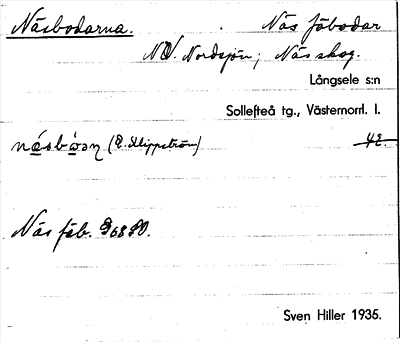 Näsbodarna. Näs fäbodar
NV. Nordsjön; Näs skog.
Långsele s:n
Sollefteå tg., Västernorrl. l.
(E. Klippström) 4E.
Näs fäb. G68SO.
Sven Hiller 1935.